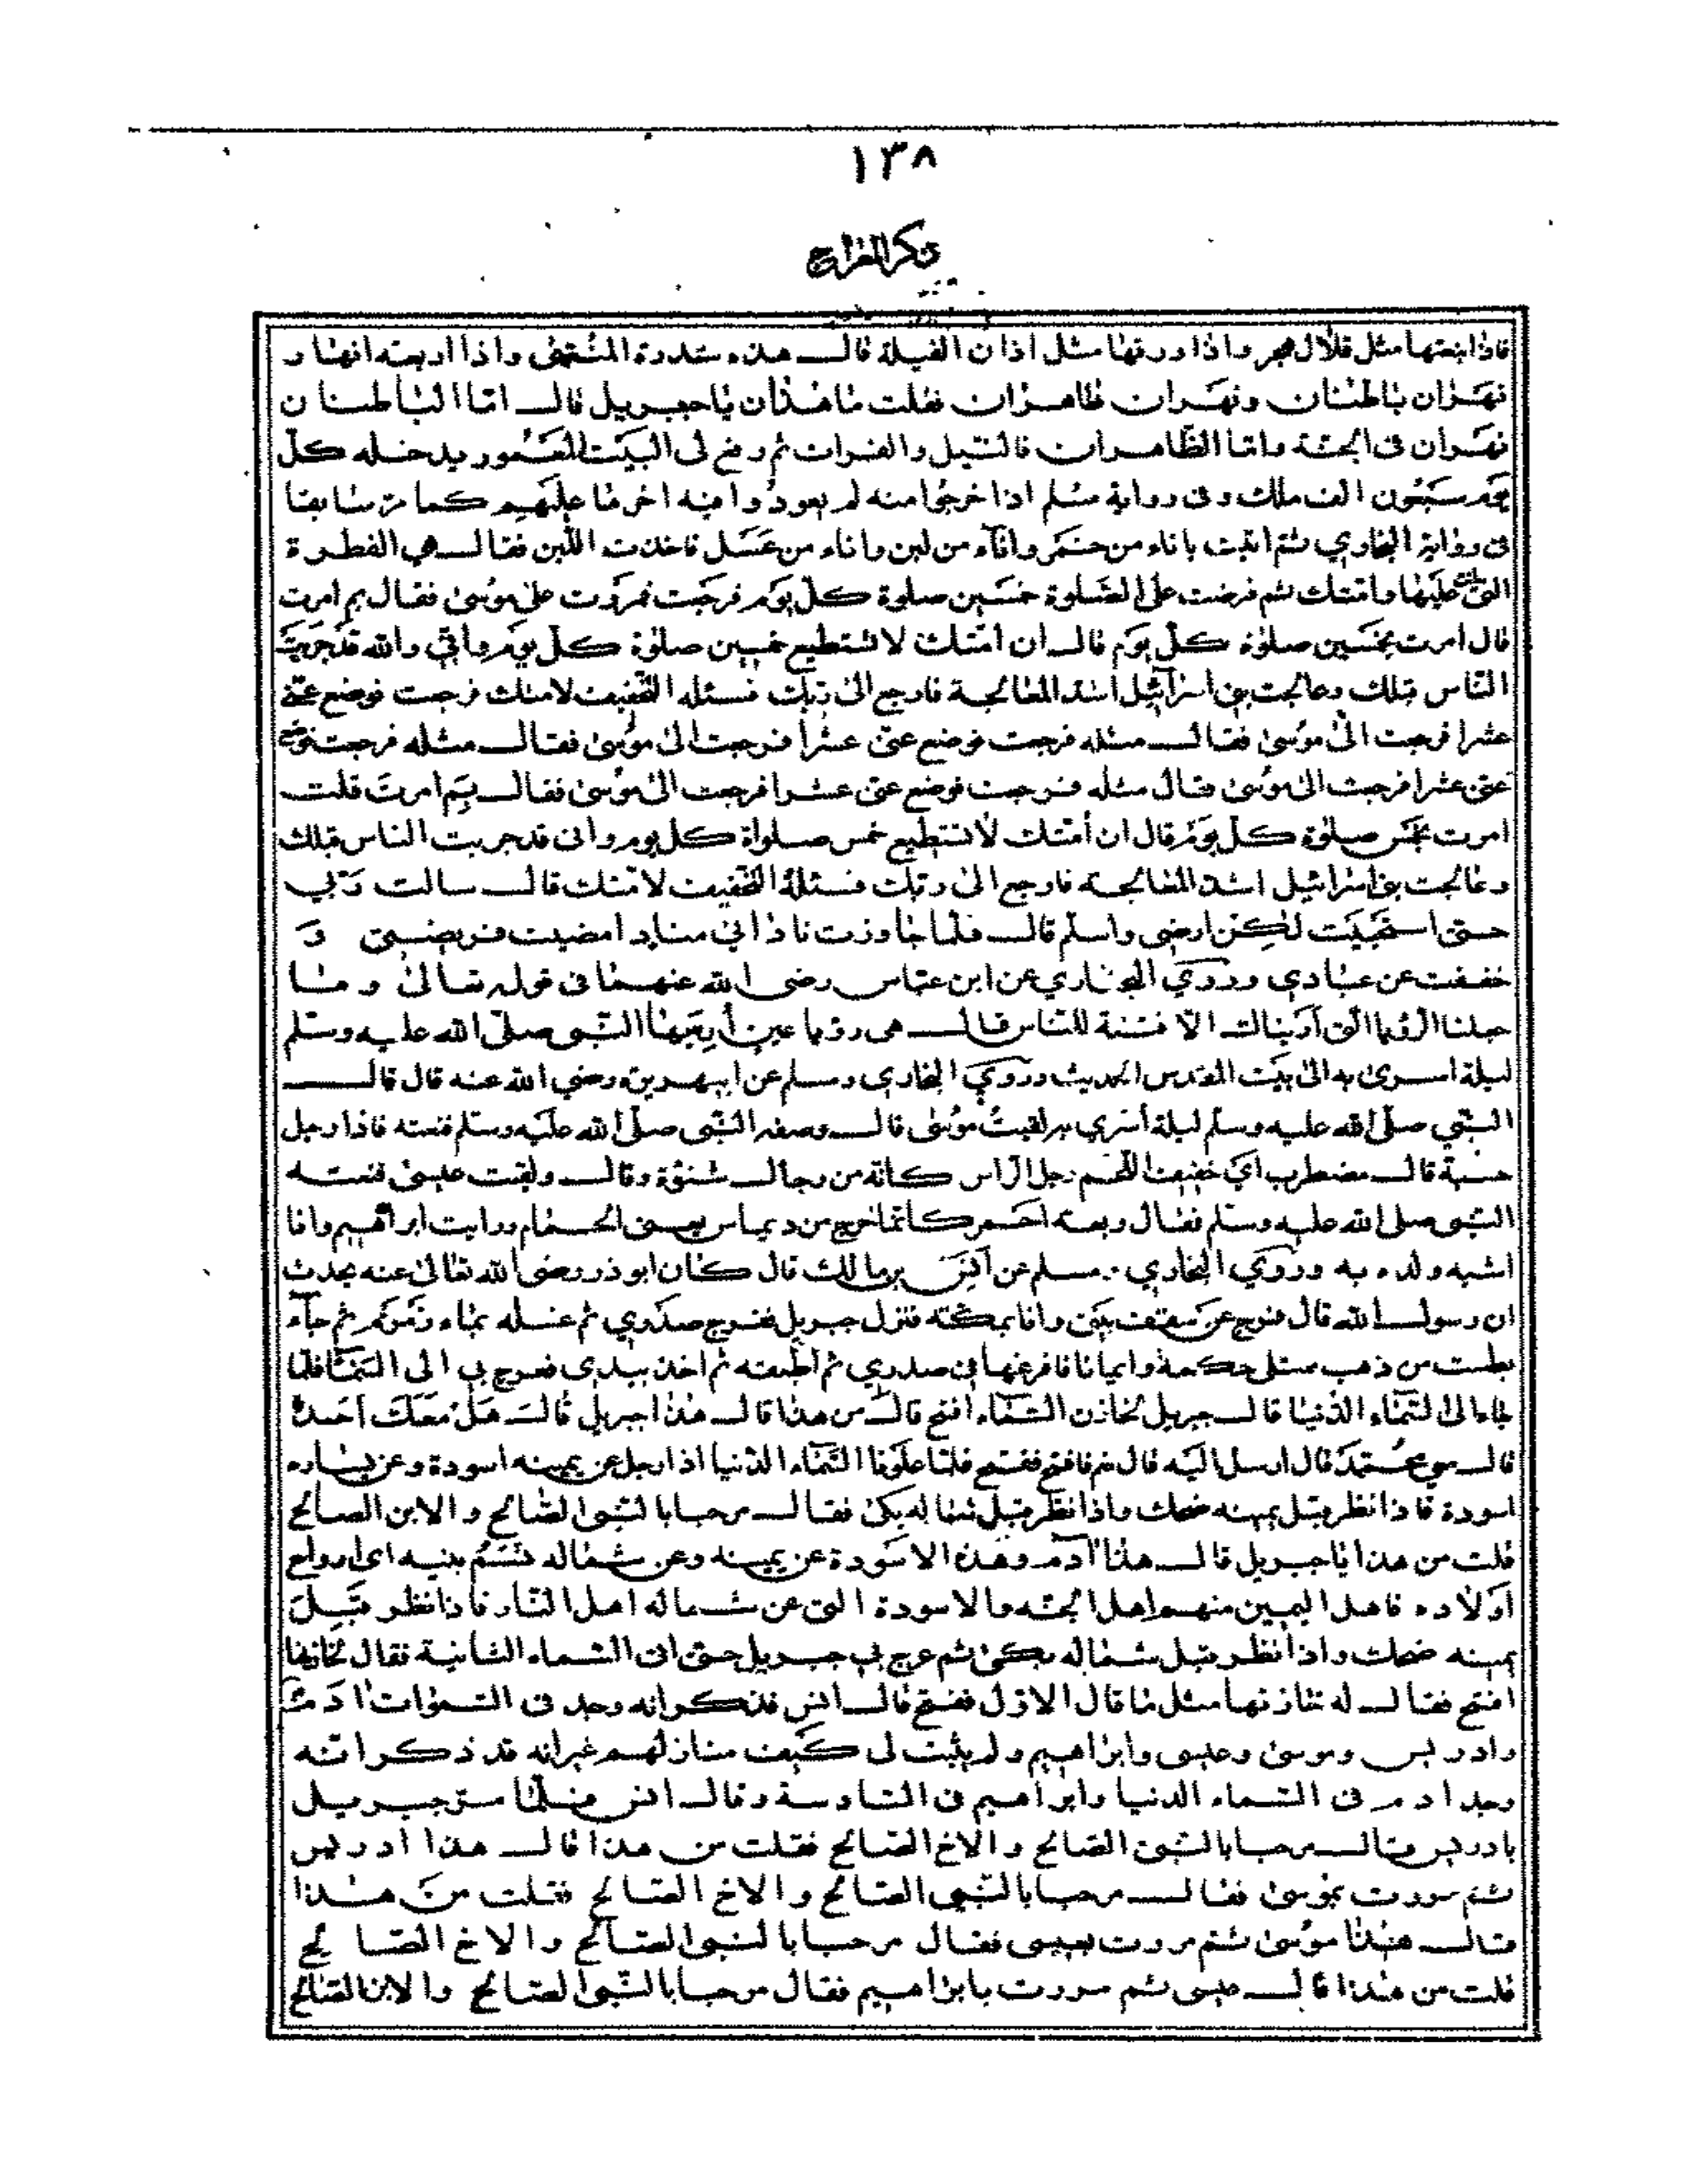 ١٣٨
ذكر المعراج
فاذا نبقها مثل قلال هجر واذا ورقها مثل اذان الفيلة قال هذه سدرة المنتهى واذا اربعة انهار
نهران باطنان ونهران ظاهران فقلت ما هذان يا جبريل قال اما الباطنان
نهران فى الجنة واما الظاهران فالنيل والفرات ثم رفع لى البيت المعمور يدخله كل
يوم سبعون الف ملك وفى رواية مسلم اذا خرجوا منه لم يعودوا فيه اخر ما عليهم كما مر سابقا
فى رواية البخاري ثم اتيت باناء من خمر وانآء من لبن واناء من عسل فاخذت اللبن فقال هي الفطرة
التى انت عليها وامتك ثم فرضت على الصلوة خمسين صلوة كل يوم فرجعت فمررت على موسى فقال بم امرت
قال امرت بخمسين صلوة كل يوم قال ان امتك لا تستطيع خمسين صلوة كل يوم وانى والله قد جربت
الناس قبلك وعالجت بنى اسرآئيل اشد المعالجة فارجع الى ربك فسئله التخفيف لامتك فرجعت فوضع عنى
عشرا فرجعت الى موسى فقال مثله فرجعت فوضع عنى عشرا فرجعت الى موسى فقال مثله فرجعت فوضع
عنى عشرا فرجعت الى موسى فقال مثله فرجعت فوضع عنى عشرا فرجعت الى موسى فقال بم امرت قلت
امرت بخمس صلوة كل يوم قال ان امتك لا تستطيع خمس صلواة كل يوم وانى قد جربت الناس قبلك
وعالجت بنى اسرائيل اشد المعالجة فارجع الى ربك فسئله التخفيف لامتك قال سالت ربي
حتى استحييت لكن ارضى واسلم قال فلما جاوزت نادانى مناد امضيت فريضتى و
خففت عن عبادي وروي البخاري عن ابن عباس رضى الله عنهما فى قوله تعالى وما
جعلنا الرؤيا التى اريناك الا فتنة للناس قال هى رؤيا عين أريها النبى صلى الله عليه وسلم
ليلة اسرى به الى بيت المقدس الحديث وروي البخاري ومسلم عن ابيهريرة رضي الله عنه قال قال
النبي صلى الله عليه وسلم ليلة أسري به لقيت موسى قال وصفه النبى صلى الله عليه وسلم فنعته فاذا رجل
حسبته قال مضطرب اي خفيف اللحم رجل الراس كانه من رجال شنوة وقال ولقيت عيسى فنعته
النبى صلى الله عليه وسلم فقال ربعة احمر كانما خرج من ديماس يعنى الحمام ورايت ابراهيم وانا
اشبه ولده به وروي البخاري ومسلم عن أنس بن مالك قال كان ابو ذر رضى الله تعالى عنه يحدث
ان رسول الله قال فرج عن سقف بيتى وانا بمكة فنزل جبريل ففرج صدري ثم غسله بماء زمزم ثم جآء
بطست من ذهب ممتلى حكمة وايمانا فافرغها فى صدري ثم اطبقه ثم اخذ بيدى فعرج بى الى السمآ فلما
جاء الى السماء الدنيا قال جبريل لخازن السماء افتح قال من هذا قال هذا جبريل قال هل معك احد
قال معي محمد قال ارسل اليه قال نعم فافتح ففتح فلما علونا السماء الدنيا اذا رجل عن يمينه اسودة وعن يساره
اسودة فاذا نظر قبل يمينه ضحك واذا نظر قبل شماله بكى فقال مرحبا بالنبى الصالح والابن الصالح
قلت من هذا يا جبريل قال هذا آدم وهذه الاسودة عن يمينه وعن شماله نسم بنيه اى ارواح
اولاده فاهل اليمين منهم اهل الجنة والاسودة التى عن شماله اهل النار فاذا نظر قبل
يمينه ضحك واذا نظر قبل شماله بكى ثم عرج بي جبريل حتى اتى السماء الثانية فقال لخازنها
افتح فقال له خازنها مثل ما قال الاول ففتح قال انس فذكر انه وجد فى السموات ادم
وادريس وموسى وعيسى وابراهيم ولم يثبت لى كيف منازلهم غير انه قد ذكر انه
وجد ادم فى السماء الدنيا وابراهيم فى السادسة وقال انس فلما مر جبريل
بادريس قال مرحبا بالنبى الصالح والاخ الصالح فقلت من هذا قال هذا ادريس
ثم مررت بموسى فقال مرحبا بالنبى الصالح والاخ الصالح فقلت من هذا
قال هذا موسى ثم مررت بعيسى فقال مرحبا بالنبى الصالح والاخ الصالح
قلت من هذا قال عيسى ثم مررت بابراهيم فقال مرحبا بالنبى الصالح والابن الصالح